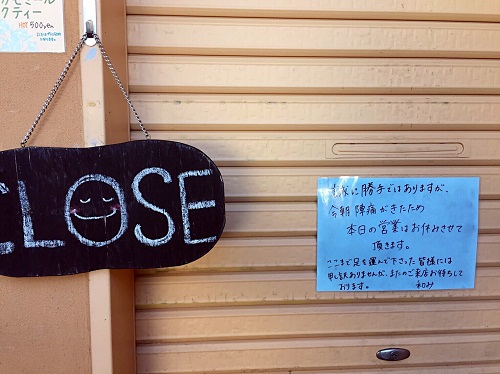 クティー
HOT 500yen
CLOSE
誠に勝手ではありますが、
今朝陣痛がきたため
本日の営業はお休みさせて
頂きます。
ここまで足を運んで下さった皆様には
申し訳ありませんが、またのご来店お待ちして
おります。 和み